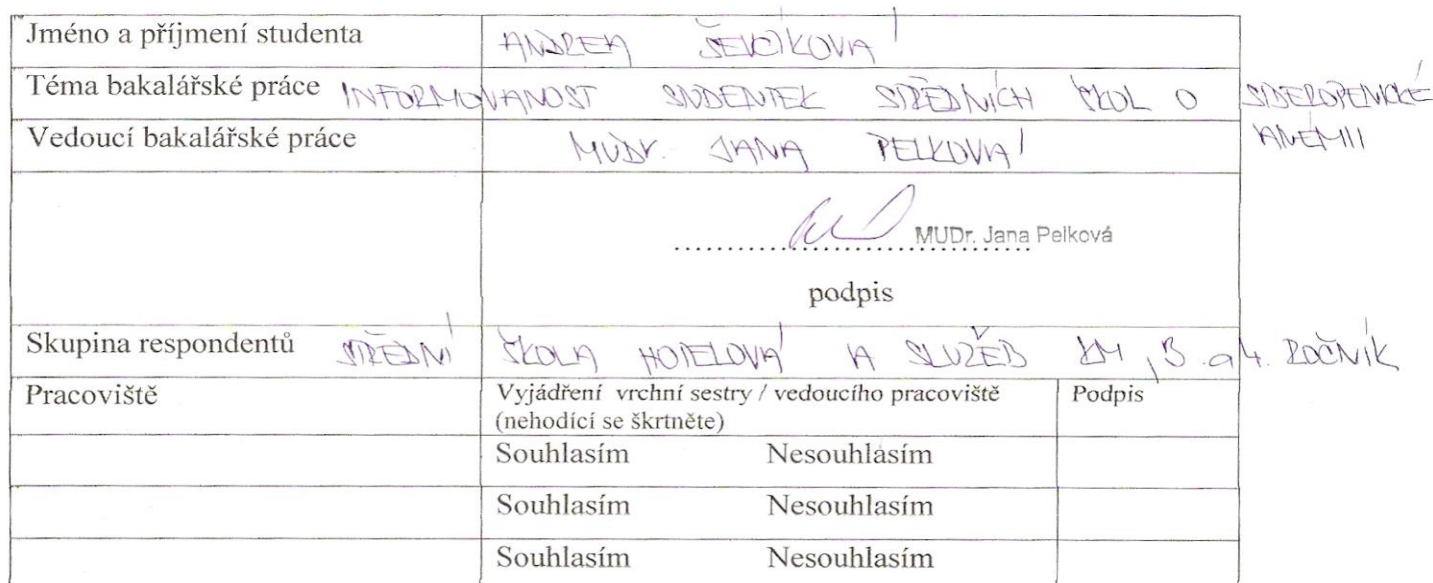 Jméno a příjmení studenta ANDREA ŠEVČÍKOVÁ
Téma bakalářské práce INFORMOVANOST STUDENTEK STŘEDNÍCH ŠKOL O SIDEROPENICKÉ
ANÉMII
Vedoucí bakalářské práce MUDr. JANA PELKOVÁ
MUDr. Jana Pelková
podpis
Skupina respondentů STŘEDNÍ ŠKOLA HOTELOVÁ A SLUŽEB KM, 3. a 4. ROČNÍK
Pracoviště Vyjádření vrchní sestry / vedoucího pracoviště Podpis
(nehodící se škrtněte)
Souhlasím Nesouhlasím
Souhlasím Nesouhlasím
Souhlasím Nesouhlasím